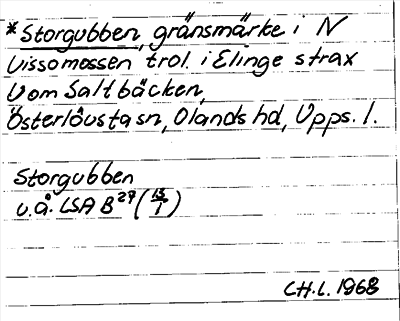 *Storgubben, gränsmärke i N
Vissomossen trol. i Elinge strax
V om Saltbäcken,
Österlövsta sn, Olands hd, Upps. l.
Storgubben
u.å. LSA B27 (13/1)
CH.L. 1968